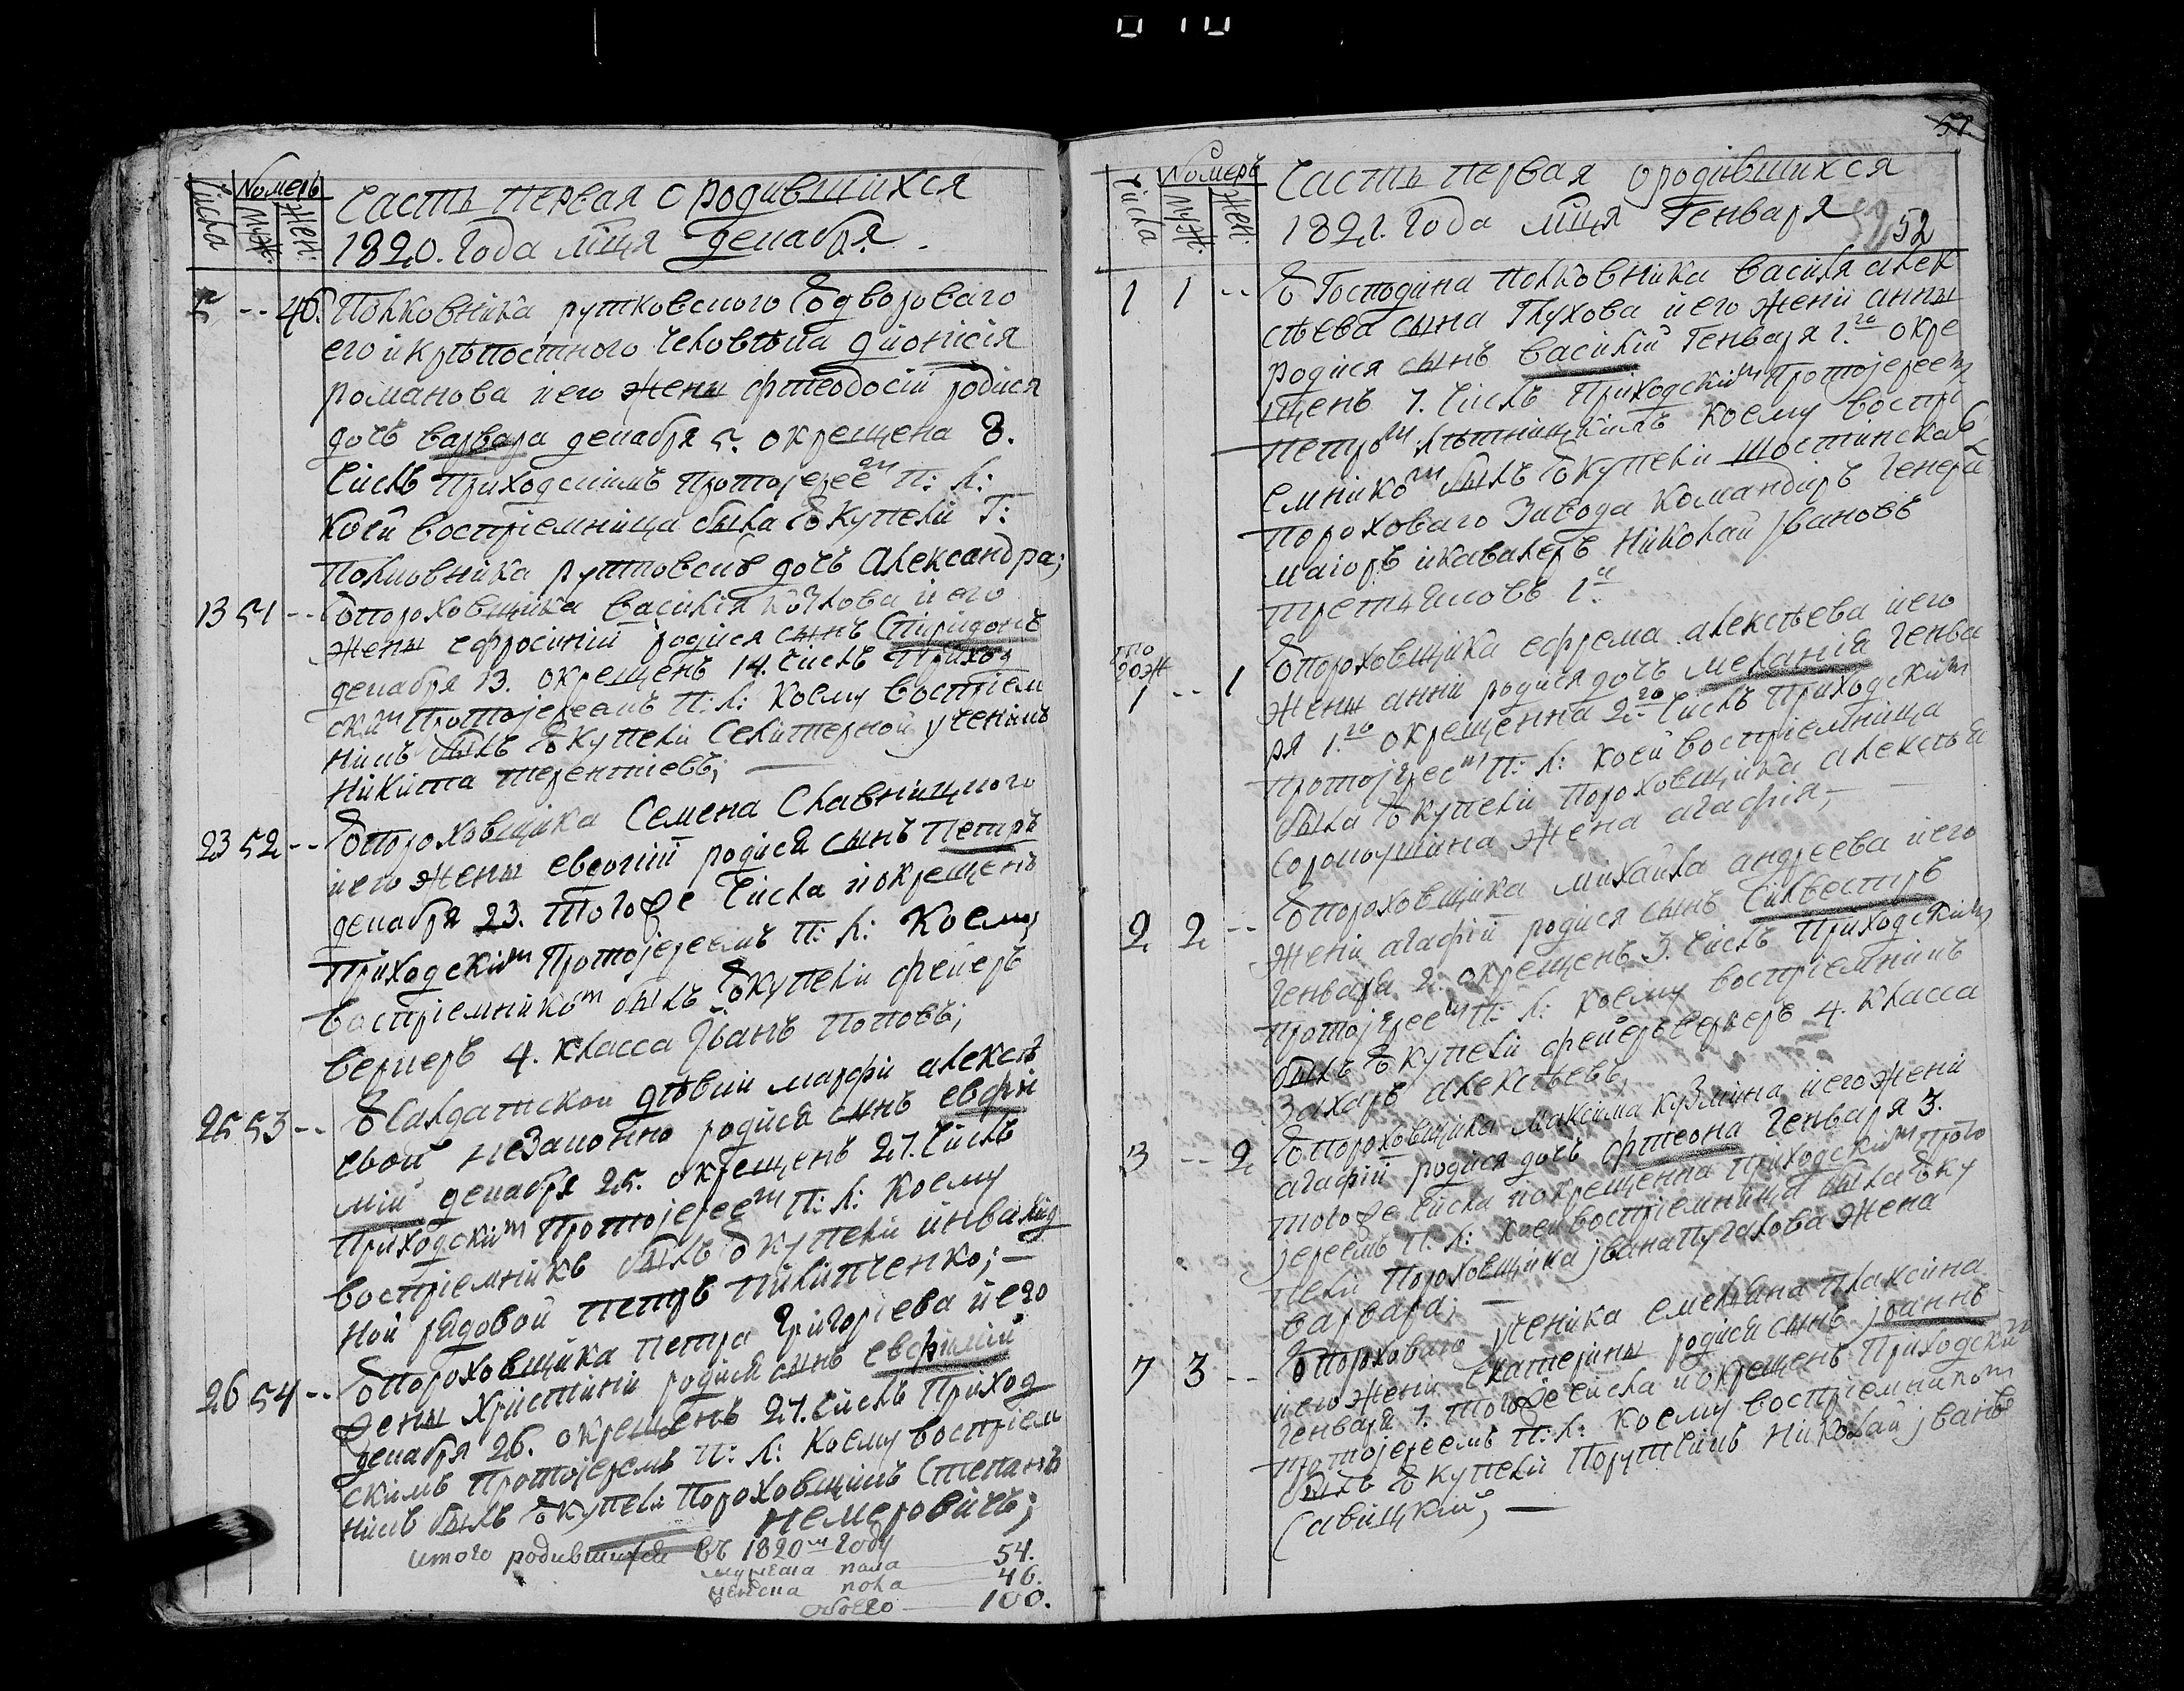 Числа Номеръ Муж: Жен:
Часть первая о родившихся
1820. Года мця декабря
5 -- 46. Полковника рутковского дворового
его и крѣпостного человѣка дионисія
романова и его жены фтеодосіи родися
дочъ варвара декабря 5. окрещена 8.
Числъ Приходскимъ Протоіереем П: Л:
Коей воспріемница была в купели Г:
Полковника рутковскᲂ дочъ Александра;
13 51 -- Ꙋ пороховщика Василія кᲂ его
жены ефросиніи родися сынъ Спиридонъ
декабря 13. окрещенъ 14. Числъ Приход
ским Протоіереемъ П: Л: Коему воспріем
никъ былъ в купели Селитерной ученикъ
Никита терентиевъ;
23 52 -- пороховщика Семена Славницкого
и его жены евдокіи родися сынъ Петръ
декабря 23. тогоже Числа и окрещенъ
Приходским Протоіереемъ П: Л: Коему
воспріемником былъ в купели фейеръ
веркеръ 4. класса Іванъ Поповъ;
25 53 -- Салдатской дѣвки марфи алексѣ
евой незаконно родися сынъ евфи
мій декабря 25. окрещенъ 27. Числъ
Приходским Протоіереем П: Л: Коему
воспріемникъ былъ в купели инвалид
ной рядовой Петръ Пилипченко;
26 54 -- пороховщика Петра Григоріева и его
жены Христини родися сынъ евфимій
декабря 26. окрещенъ 27. Числъ Приход
скимъ Протоіереемъ П: Л: Коему воспріем
никъ былъ в купели Пороховщикъ Степанъ
Немеровичъ;
итого родившихся въ 1820м году
мужеска пола 54.
женска пола 46.
обоего 100.
57
Числа Номеръ Муж: Жен:
Часть первая о родившихся
1821. Года мця Генваря
52 52
1 1 -- Господина Полковника Василя алек
сѣева сына Глухова и его жени анны
родися сынъ Василій Генваря 1.го окре
щенъ 7. Числъ Приходским Протоіереем
Петром Лѣтницкимъ коему воспрі
емником былъ в купели Шостинскаго
Пороховаго Завода Командиръ Генерал
маіоръ и кавалеръ Николай Івановъ
третьяковъ 1й
того ж 1 -- 1 пороховщика ефрема алексѣева и его
жены анни родися дочъ меланія Генва
ря 1.го окрещенна 2.го Числъ Приходским
Протоіереем П: Л: коей воспріемница
была в купели Пороховщика алексѣя
жена агафія;
2 2 -- пороховщика михаила андреева и его
жени агафіи родися сынъ Силвестръ
Генваря 2. окрещенъ 3. Числъ Приходским
Протоіереем П: Л: коему воспріемникъ
былъ в купели фейерьверкеръ 4. класса
Захаръ алексѣевъ,
3 -- 2 пороховщика максима кузмина и его жени
агафіи родися дочъ фтеона Генваря 3.
тогоже числа и окрещенна Приходским Прото
іереемъ П: Л: коей воспріемница была в ку
пели Пороховщика івана Пугачова жена
варвара;
7 3 -- пороховаго ученика емелияна Плаксина
и его жени екатерины родися сынъ іоаннъ
Генваря 7. тогоже числа и окрещенъ Приходским
Протоіереемъ П: Л: коему воспріемником
былъ в купели Порутчикъ Николай іванᲂ
Савицкій;